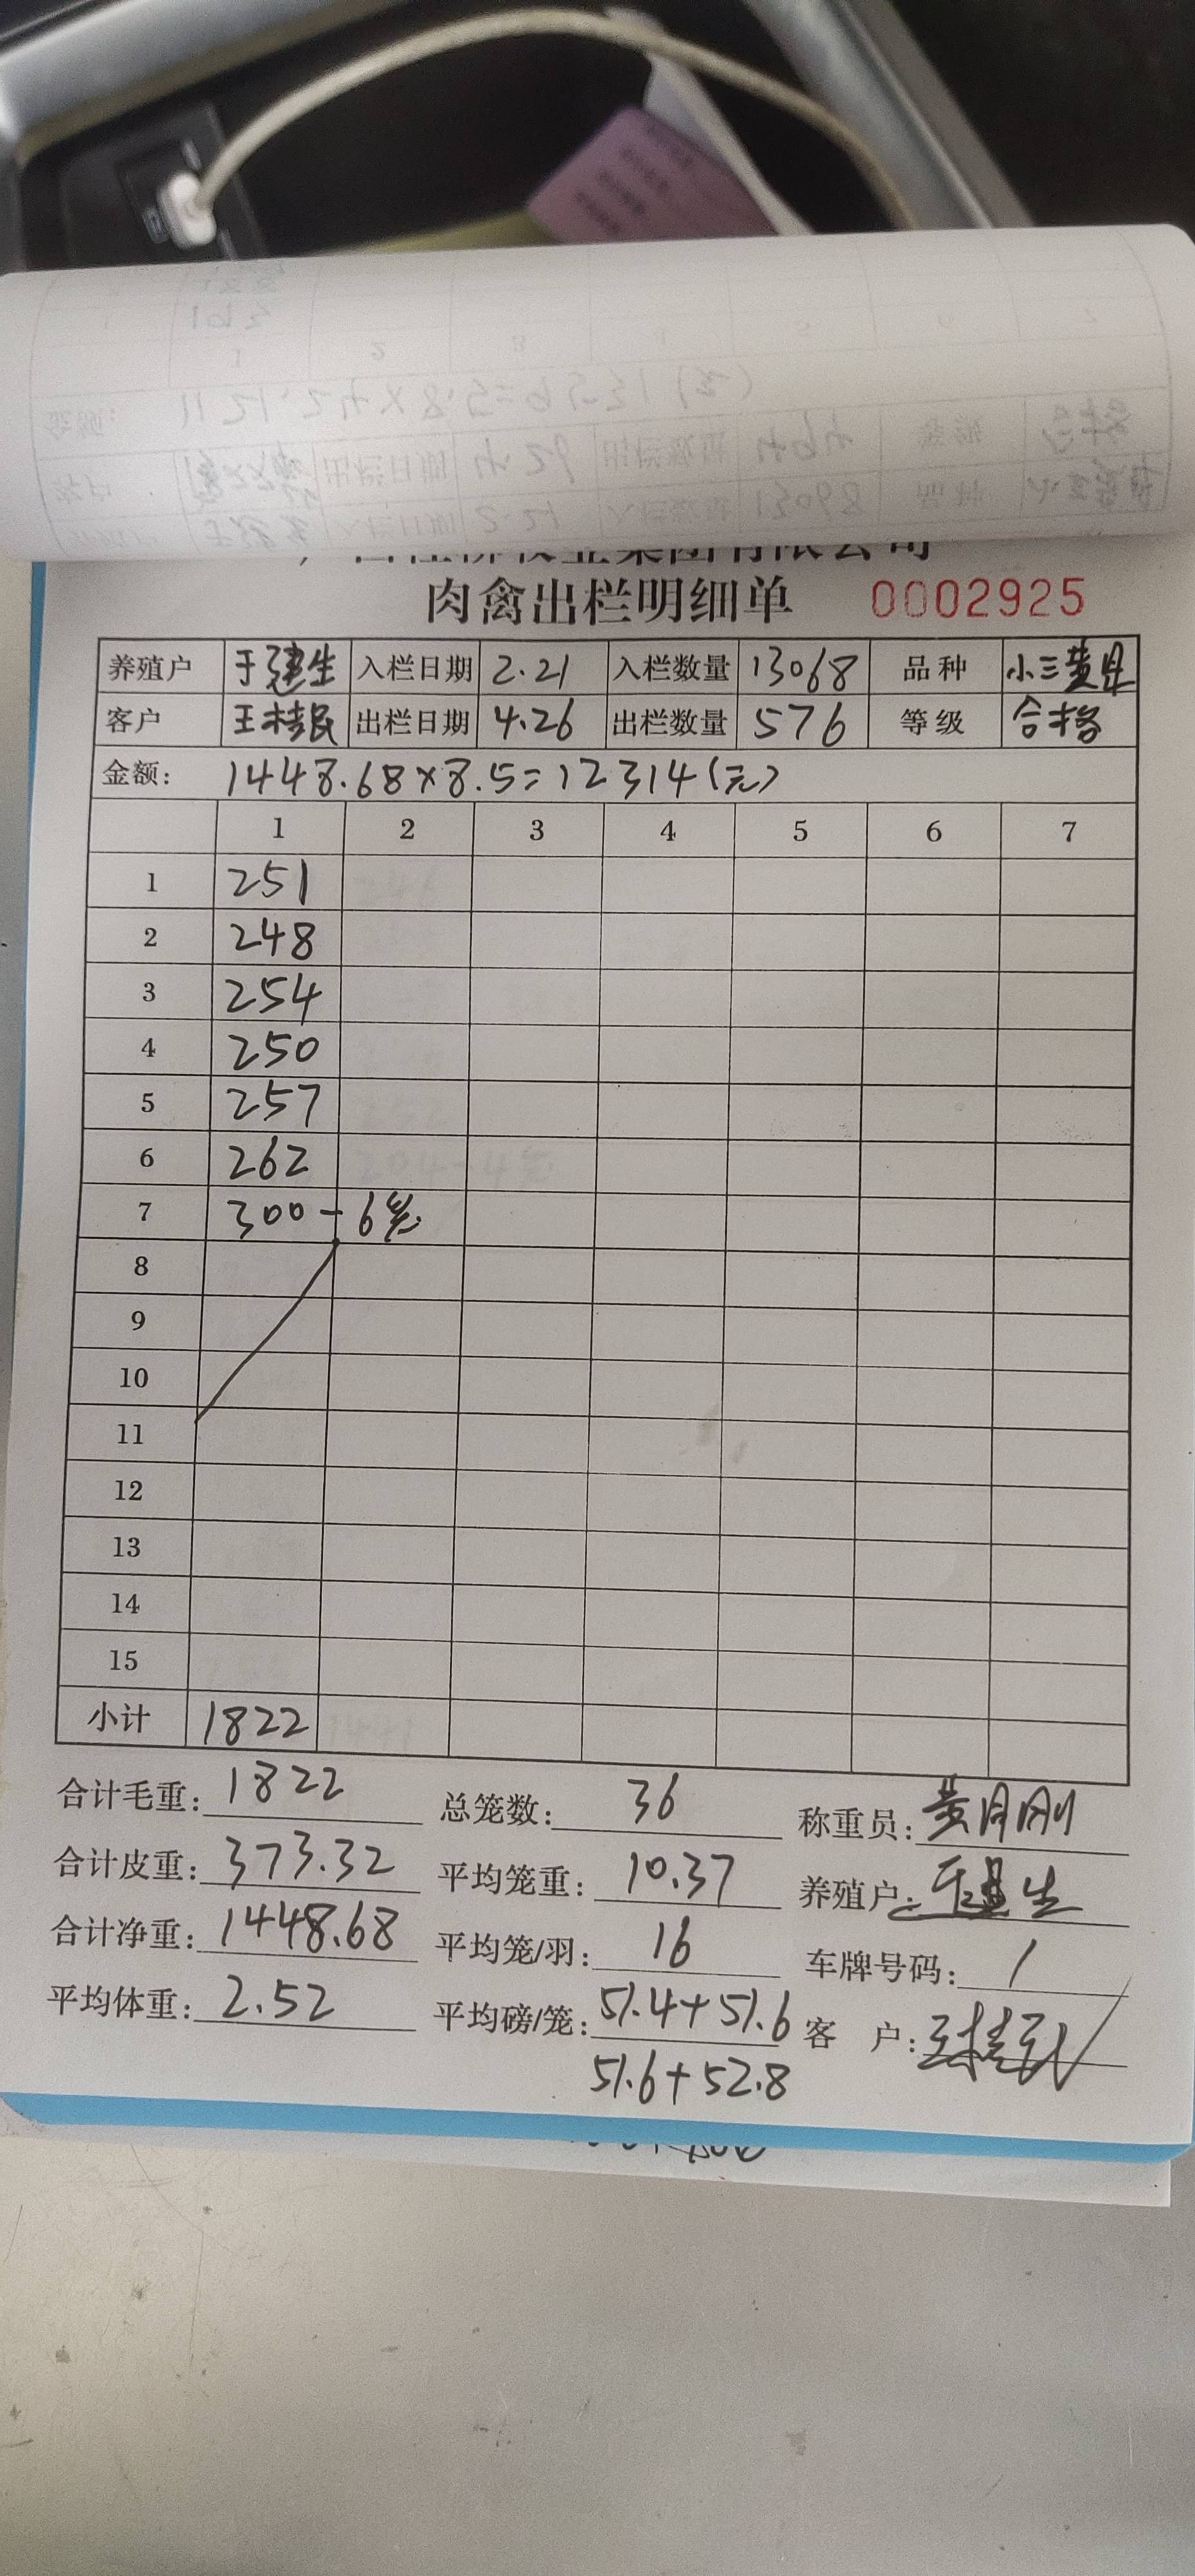 肉禽出栏明细单 0002925
养殖户 于建生 入栏日期 2.21 入栏数量 13068 品种 小三黄
客户 王桂民 出栏日期 4.26 出栏数量 576 等级 合格
金额: 1448.68×8.5=12314(元)
1 2 3 4 5 6 7
1 251
2 248
3 254
4 250
5 257
6 262
7 300-6笼
8
9
10
11
12
13
14
15
小计 1822
合计毛重: 1822 总笼数: 36 称重员: 黄月刚
合计皮重: 373.32 平均笼重: 10.37 养殖户: 于建生
合计净重: 1448.68 平均笼/羽: 16 车牌号码: /
平均体重: 2.52 平均磅/笼: 51.4+51.6 客 户: 王桂民
51.6+52.8